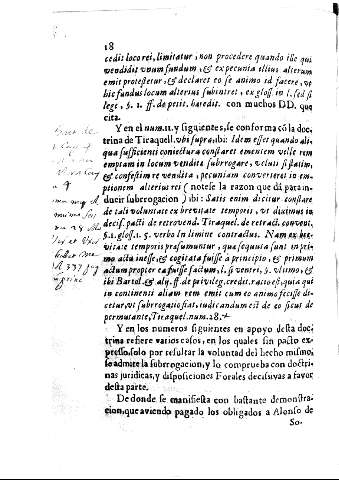 18
cedit loco rei, limitatur, non procedere quando ille qui
vendidit vnum fundum, & ex pecunia illius alterum
emit protestetur, & declaret eo se animo id facere, vt
hic fundus locum alterius subintret, ex gloss. in l. sed si
lege, §. 1. ff. de petit. haredit. con muchos DD. que
cita.
Y en el num. 11. y siguientes, se conforma cõ la doc-
trina de Tiraquell. vbi supr. ibi: Idem esset quando ali-
qua sufficienti coniectura constaret ementem velle rem
emptam in locum vendita subrogare, veluti si statim,
& confestim re vendita, pecuniam converteret in em-
ptionem alterius rei (notese la razon que dà para in-
ducir subrogacion) ibi: Satis enim dicitur constare
de tali voluntate ex brevitate temporis, vt diximus in
decis. pacti de retrovend. Tiraquel. de retract. convent.
§. 1. gloss. 1. §. verbo In limine contractus. Nam ex bre-
vitate temporis præsumuntur, qua sequuta sunt en pri-
mo actu inesse, & cogitata fuisse à principio, & primum
actum propter ea fuisse factum, l. si ventri, §. vltimo, &
ibi Bartol. & alij ff. de privileg. credit. ratio est, quia qui
in continenti aliam rem emit cum eo animo fecisse di-
cetur, vt subrogatio fiat, iudicandum est de eo sicut de
permutante, Tiraquel. num. 28.
Y en los numeros siguientes en apoyo desta doc-
trina refiere varios casos, en los quales sin pacto ex-
presso, solo por resultar la voluntad del hecho mismo,
se admite la subrrogacion, y lo comprueba con doctri-
nas juridicas, y disposiciones Forales decissivas a favor
desta parte.
De donde se manifiesta con bastante demonstra-
cion, que aviendo pagado los obligados a Alonso de
So-